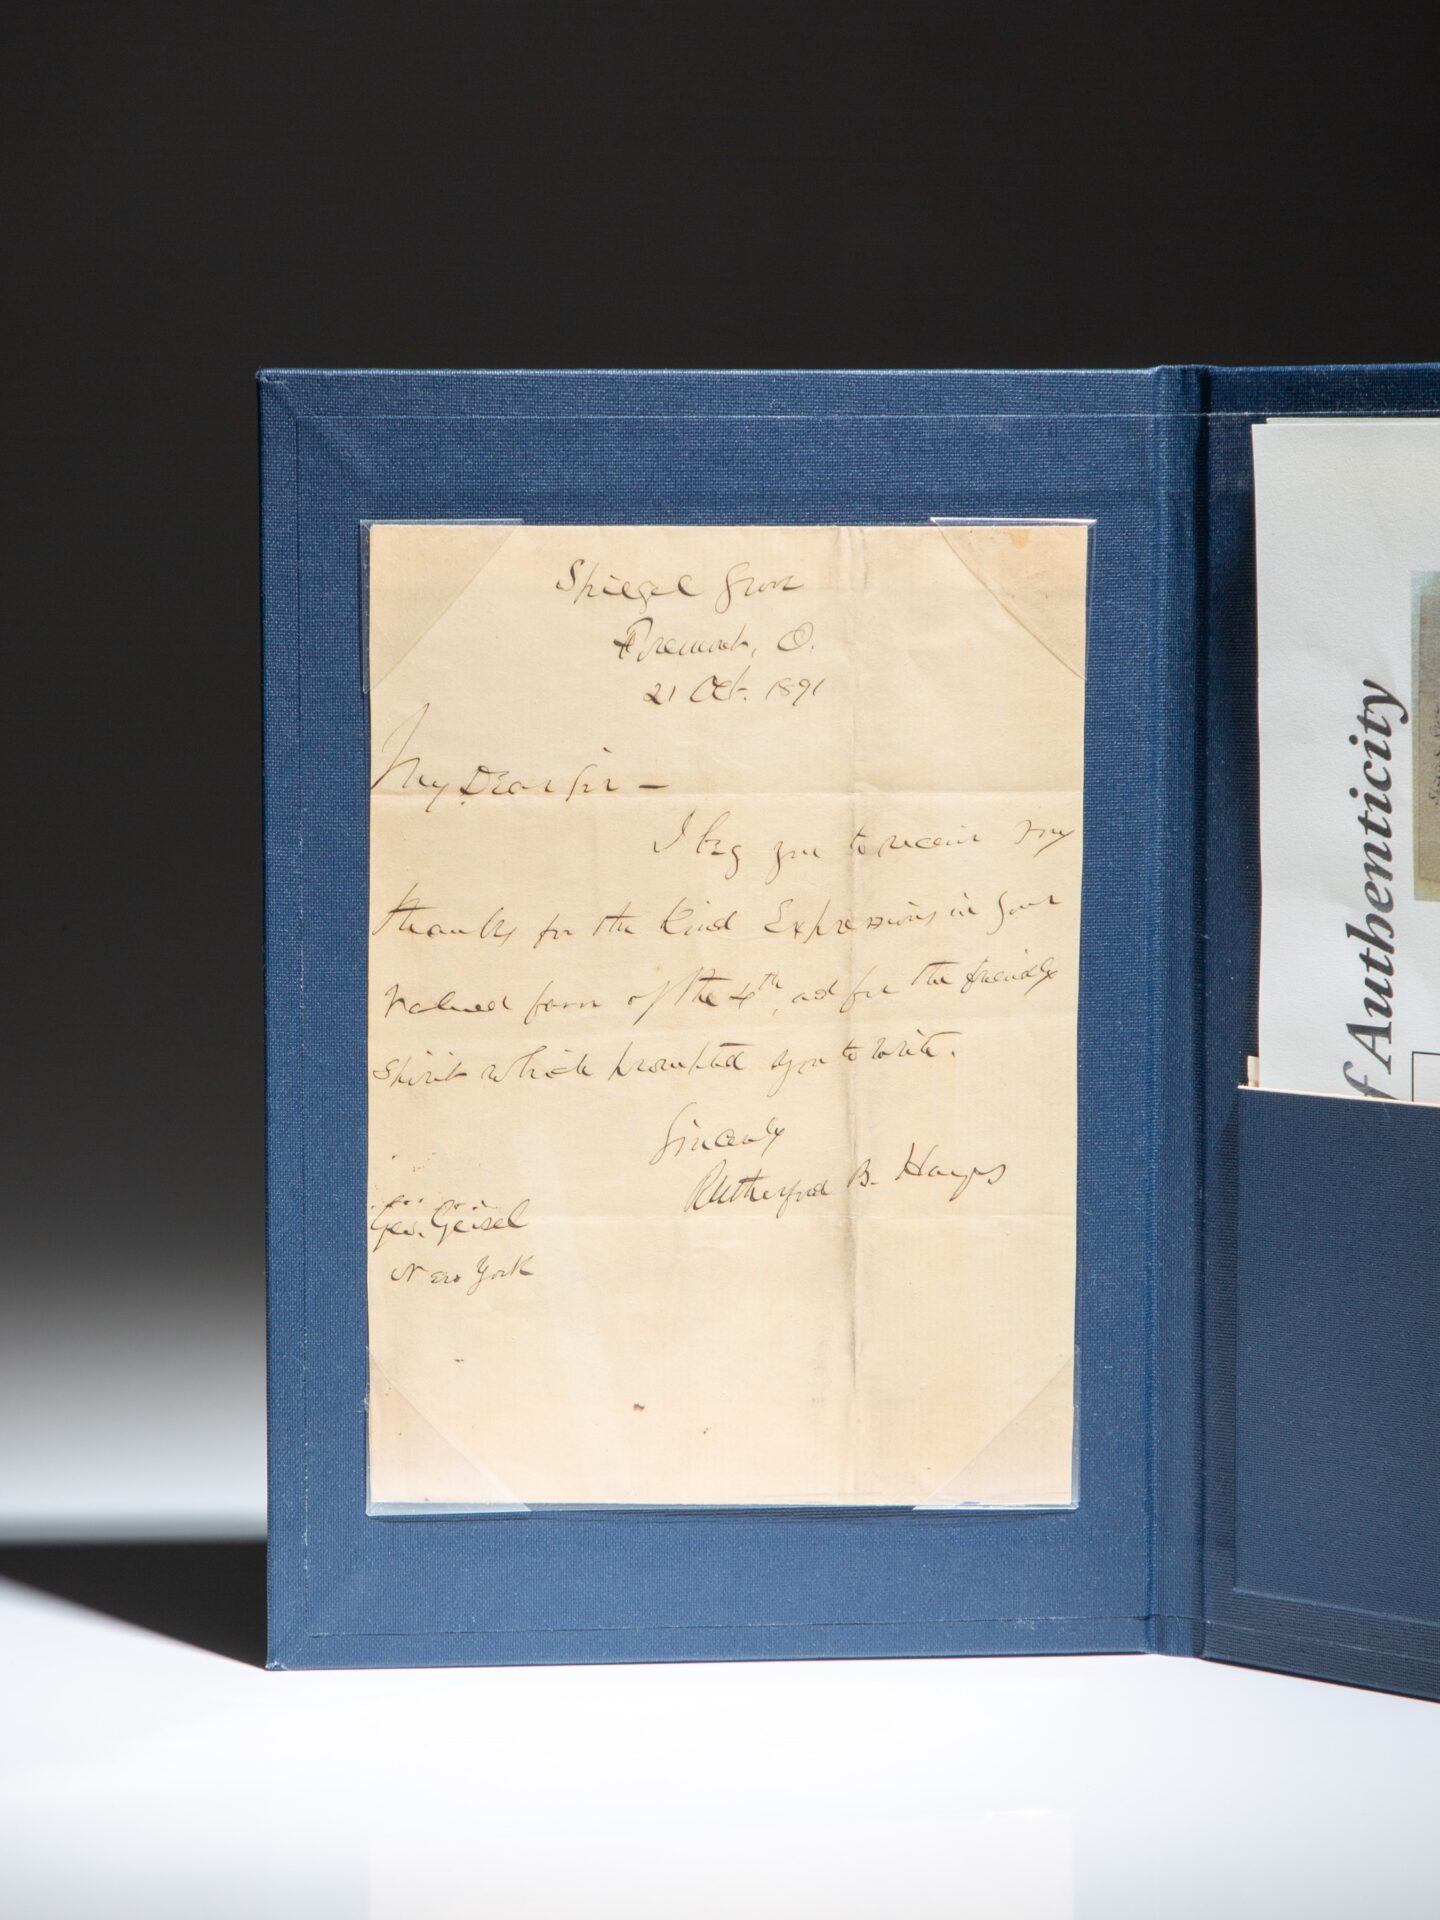 Spiegel Grove
Fremont, O.
21 Oct. 1891
My Dear Sir —
I beg you to receive my
thanks for the kind expressions in your
valued favor of the 4th, and for the friendly
spirit which prompted you to write.
Sincerely
Rutherford B. Hayes
Geo. Geisel
New York
f Authenticity